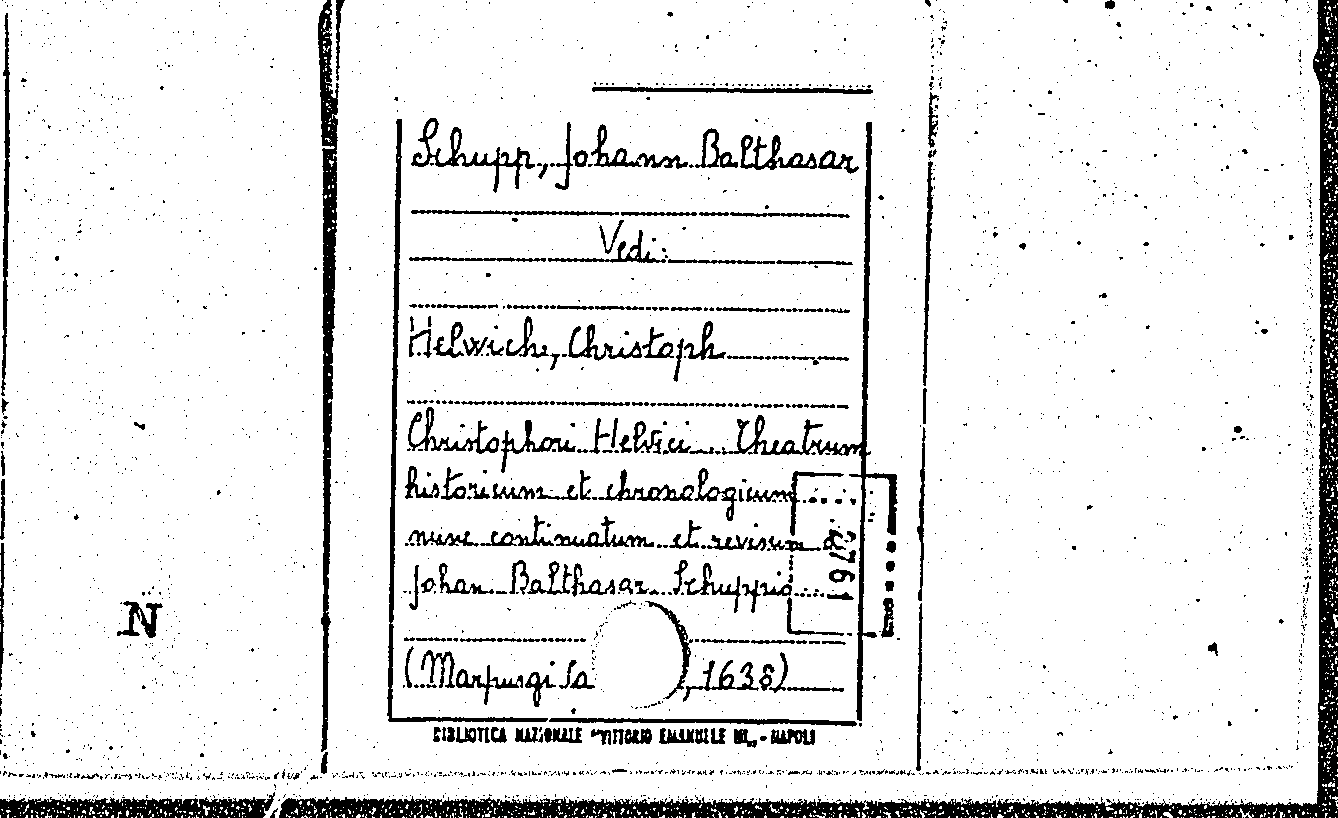 Schupp, Johann Balthasar
Vedi:
Helwich, Christoph
Christophori Helvici .. Theatrum
historicum et chronologicum ....
nunc continuatum et revisum a
Johan Balthasar Schuppio ...
(Marpurgi Ca , 1638)
BIBLIOTECA NAZIONALE "VITTORIO EMANUELE III„ - NAPOLI
N